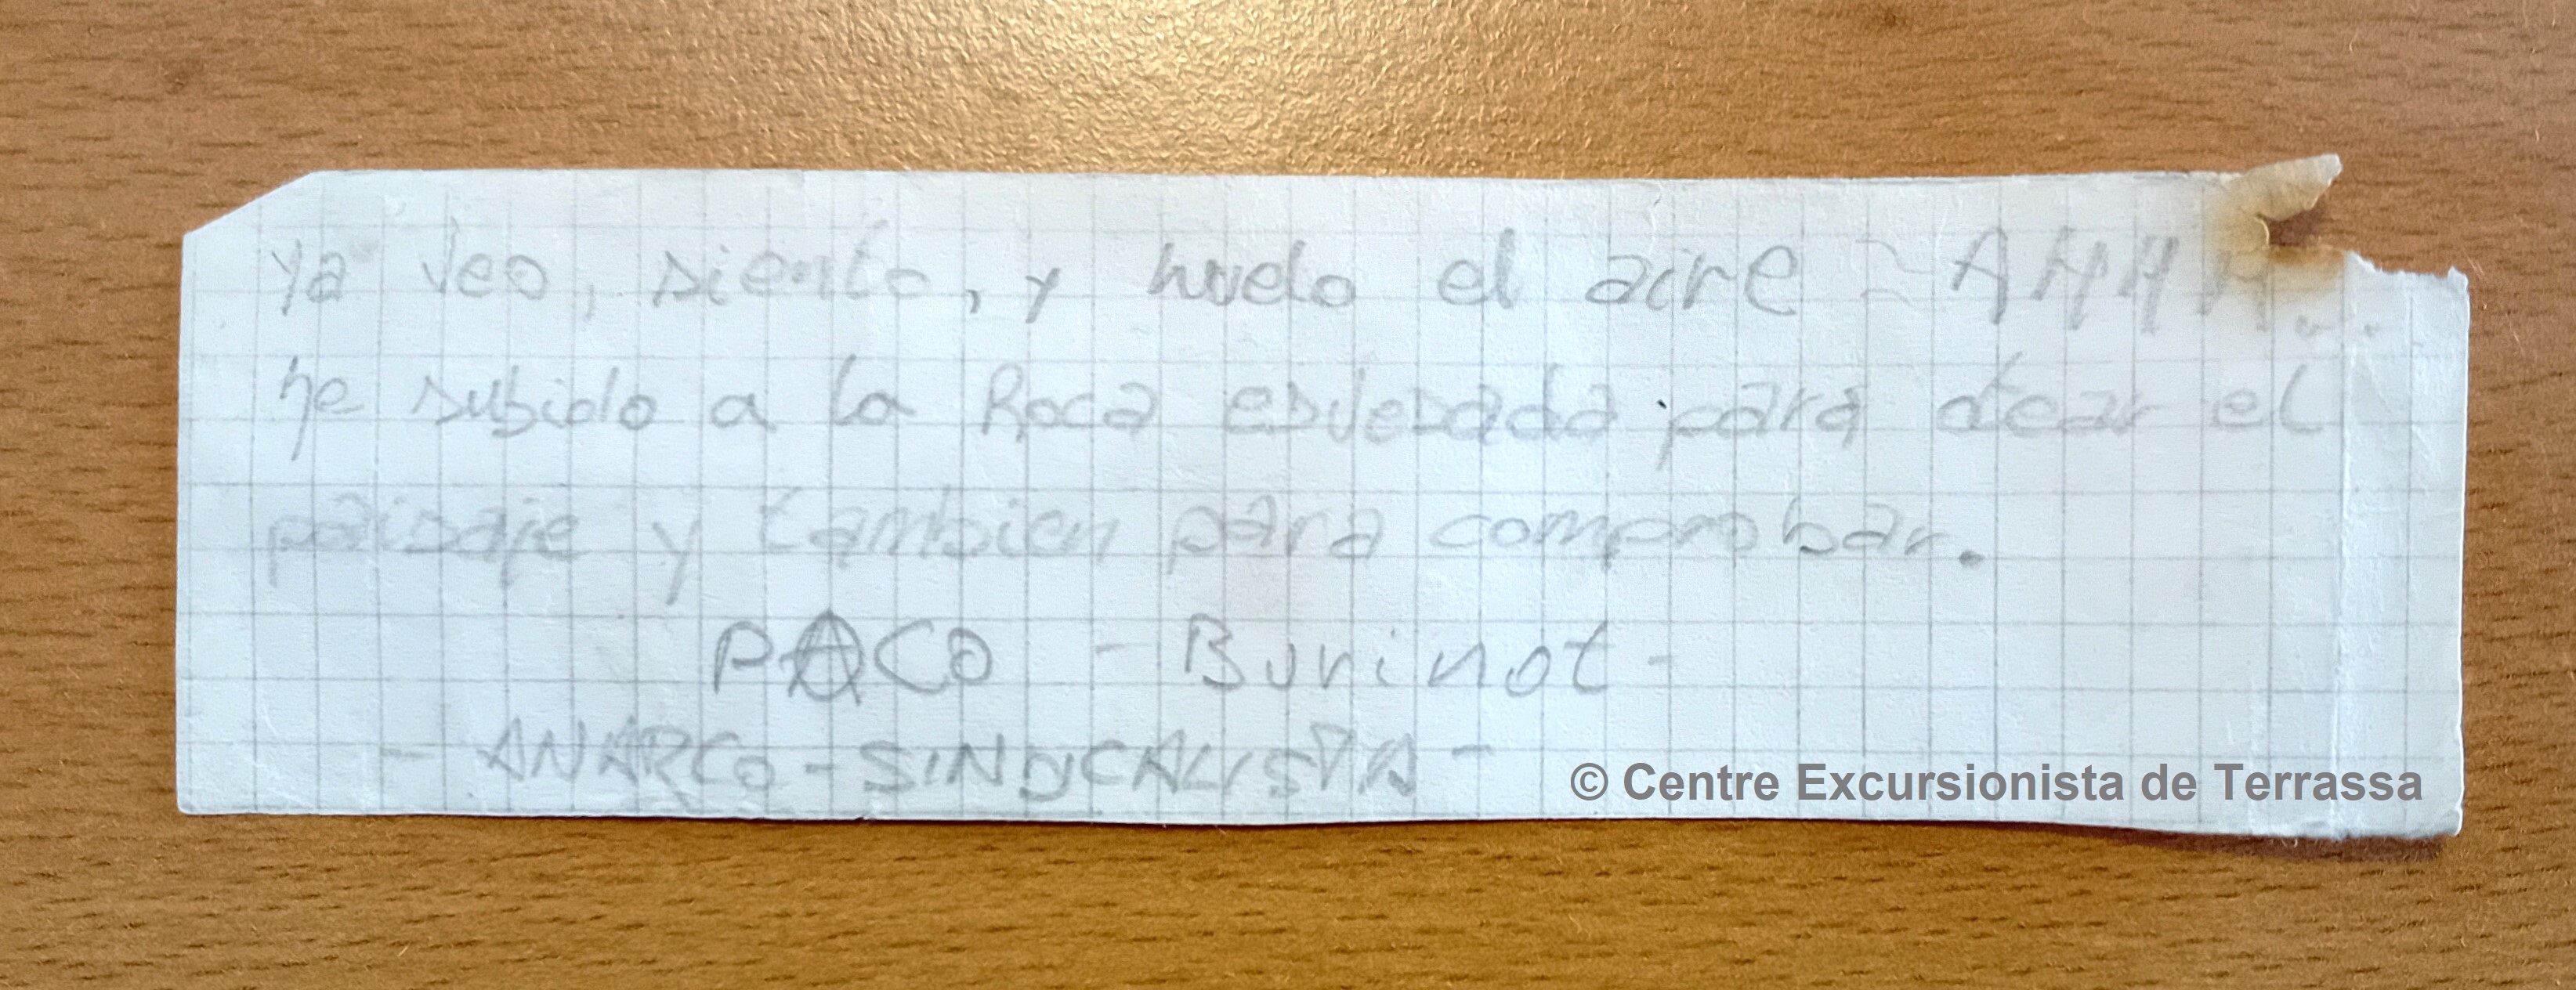 ya veo, siento, y huelo el aire ~ AHHH...
he subido a la Roca esvesada para otear el
paisaje y tambien para comprobar.
PACO - Burinot -
- ANARCO - SINDICALISTA -
© Centre Excursionista de Terrassa